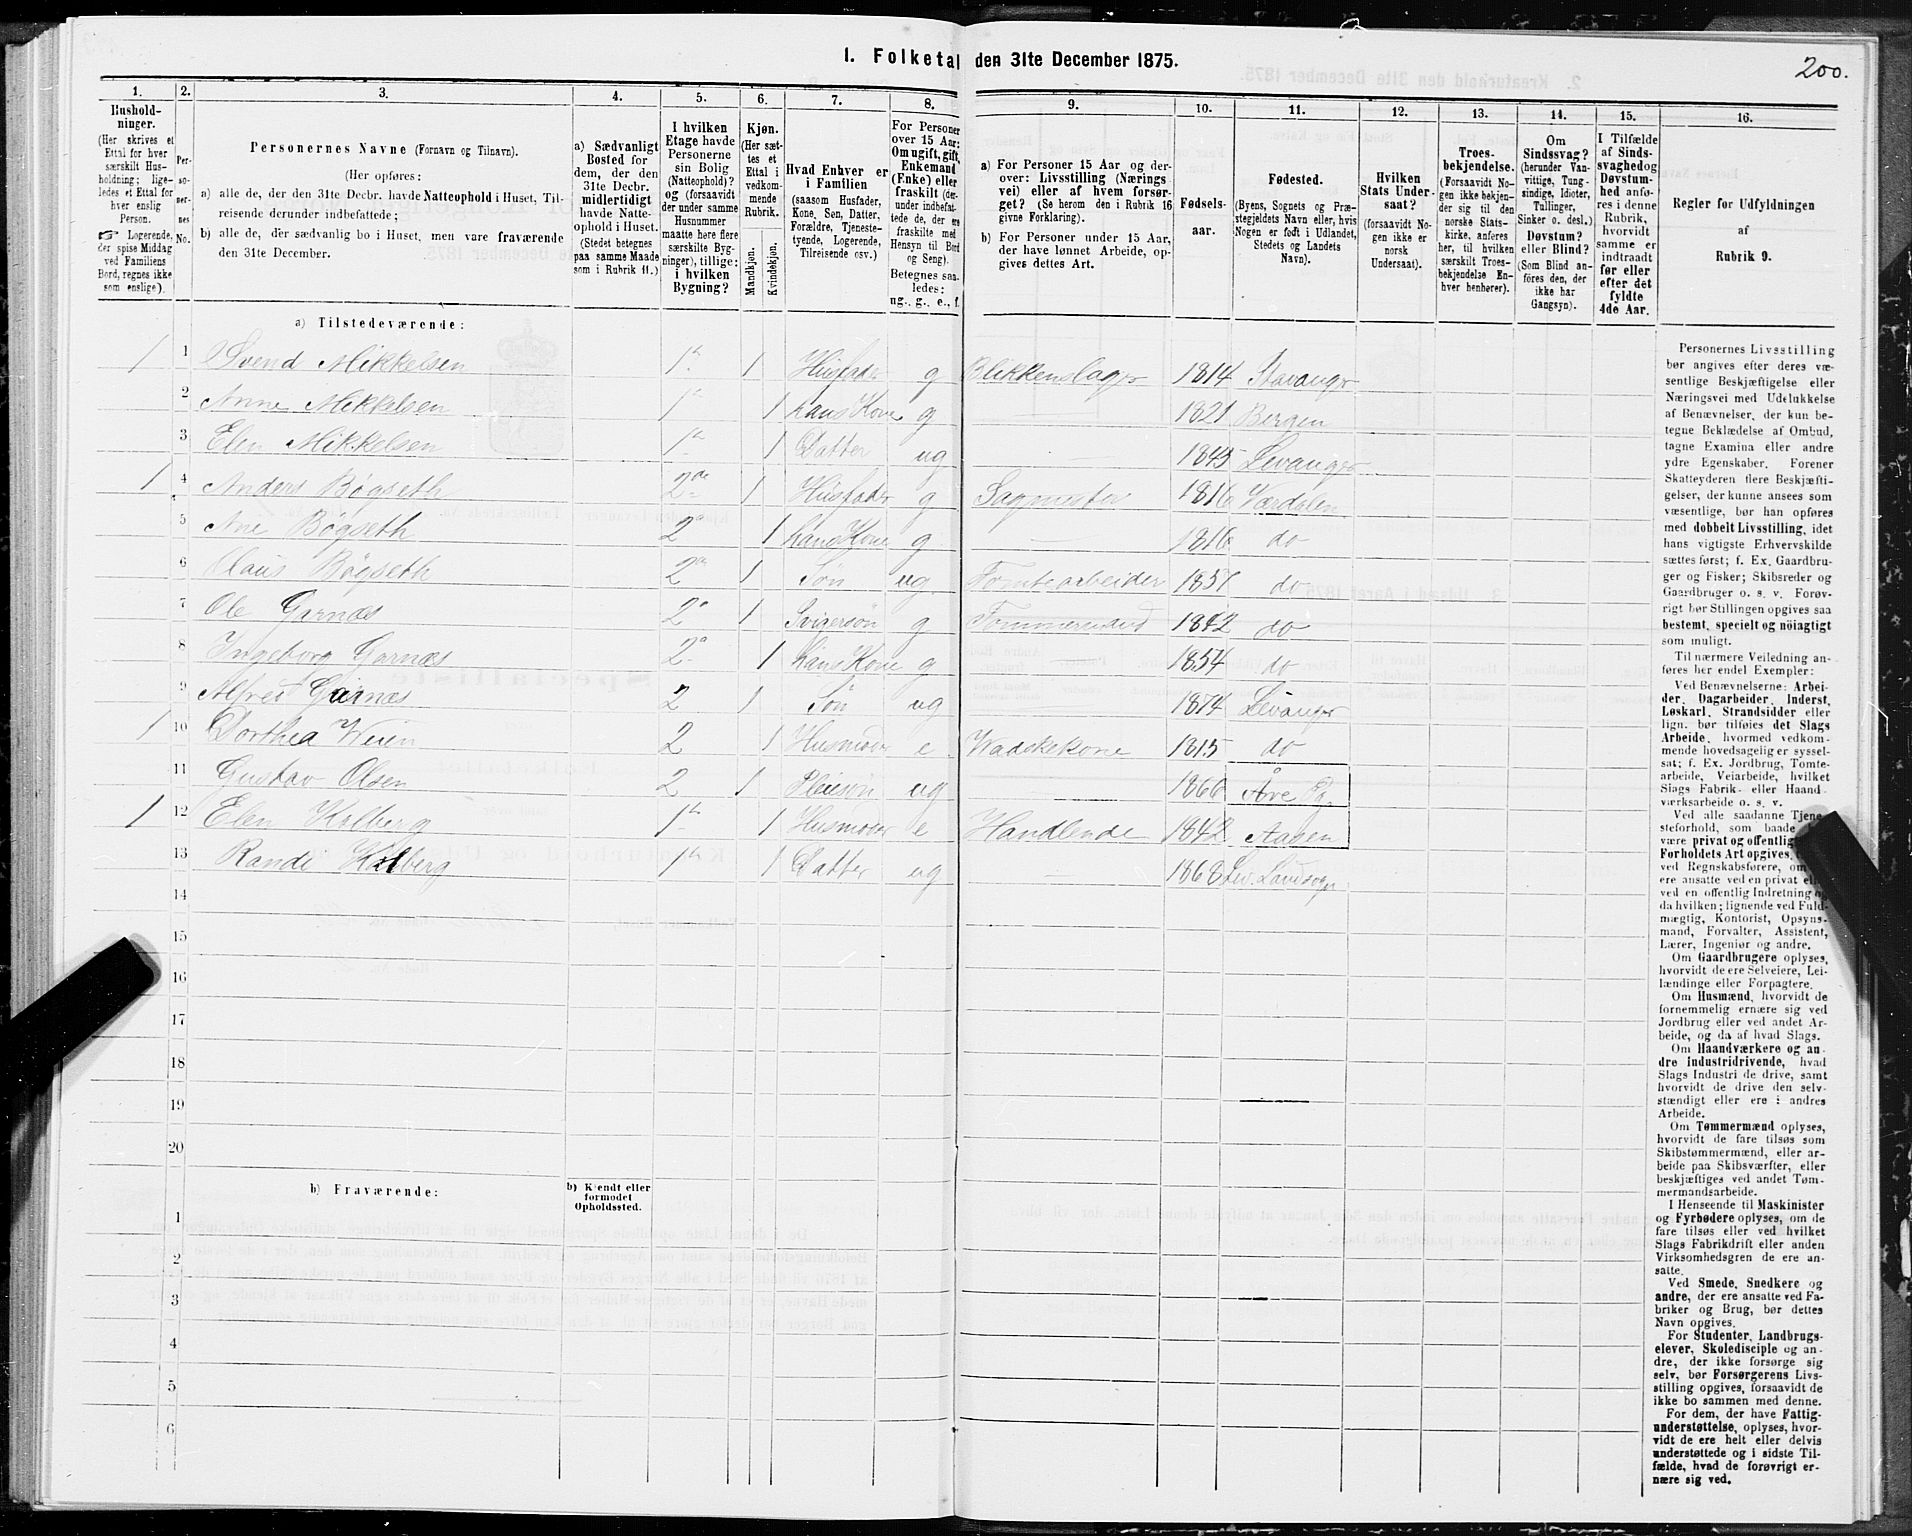 200.
1. Folketal den 31te December 1875.
1. 2. 3. 4. 5. 6. 7. 8. 9. 10. 11. 12. 13. 14. 15. 16.
Hushold-
ninger.
(Her skrives et
Ettal for hver
særskilt Hus-
holdning; lige-
ledes et Ettal for
hver enslig
Person.
☞ Logerende,
der spise Middag
ved Familiens
Bord, regnes ikke
som enslige).
Per-
so-
ner-
nes
No.
Personernes Navne (Fornavn og Tilnavn).
(Her opføres:
a) alle de, der den 31te Decbr. havde Natteophold i Huset, Til-
reisende derunder indbefattede;
b) alle de, der sædvanlig bo i Huset, men vare fraværende
den 31te December.
a) Sædvanligt
Bosted for
dem, der den
31te Decbr.
midlertidigt
havde Natte-
ophold i Huset.
(Stedet betegnes
paa samme Maade
som i Rubrik 11.)
I hvilken
Etage havde
Personerne
sin Bolig
(Natteophold)?
og (forsaavidt
der under samme
Husnummer
maatte høre flere
særskilte Byg-
ninger), tillige:
i hvilken
Bygning?
Kjøn.
(Her sæt-
tes et
Ettal i
vedkom-
mende
Rubrik.
Mandkjøn.
Kvindekjøn.
Hvad Enhver er
i Familien
(saasom Husfader,
Kone, Søn, Datter,
Forældre, Tjeneste-
tyende, Logerende,
Tilreisende osv.)
For Personer
over 15 Aar:
Om ugift, gift,
Enkemand
(Enke) eller
fraskilt (der-
under indbefat-
tede de, der ere
fraskilte med
Hensyn til Bord
og Seng).
Betegnes saa-
ledes:
ug., g., e., f.
a) For Personer 15 Aar og der-
over: Livsstilling (Nærings-
vei) eller af hvem forsør-
get? (Se herom den i Rubrik 16
givne Forklaring).
b) For Personer under 15 Aar,
der have lønnet Arbeide, op-
gives dettes Art.
Fødsels-
aar.
Fødested.
(Byens, Sognets og Præ-
stegjeldets Navn eller, hvis
Nogen er født i Udlandet,
Stedets og Landets
Navn).
Hvilken
Stats Under-
saat?
(forsaavidt No-
gen ikke er
norsk
Undersaat).
Troes-
bekjendelse.
(Forsaavidt No-
gen ikke bekjen-
der sig til den
norske Stats-
kirke, anføres
her, til hvilken
særskilt Troes-
bekjendelse En-
hver henhører).
Om
Sindssvag?
(herunder Van-
vittige, Tung-
sindige, Idioter,
Tullinger,
Sinker o. desl.)
Døvstum?
eller Blind?
(Som Blind an-
føres den, der
ikke har
Gangsyn).
I Tilfælde
af Sinds-
svaghed og
Døvstum-
hed anfø-
res i denne
Rubrik,
hvorvidt
samme er
indtraadt
før eller
efter det
fyldte
4de Aar.
Regler for Udfyldningen
af
Rubrik 9.
a) Tilstedeværende:
1 1 Svend Mikkelsen 1ste 1 Husfader g Blikkenslager 1814 Stavanger
2 Anne Mikkelsen 1ste 1 hans Kone g 1821 Bergen
3 Elen Mikkelsen 1ste 1 Datter ug 1845 Levanger
1 4 Anders Bøgseth 2den 1 Husfader g Sagmester 1816 Værdalen
5 Ane Bøgseth 2den 1 hans Kone g 1816 do
6 Claus Bøgseth 2den 1 Søn ug Tomtearbeider 1857 do
7 Ole Garnæs 2den 1 Svigersøn g Tømmermand 1842 do
8 Ingeborg Garnæs 2den 1 hans Kone g 1854 do
9 Alfred Garnæs 2 1 Søn ug 1874 Levanger
1 10 Dorthea Weien 2 1 Husmoder e Vadskekone 1815 do
11 Gustav Olsen 2 1 Pleiesøn ug 1866 Åre Pg.
1 12 Elen Kolberg 1ste 1 Husmoder e Handlende 1842 Aasen
13 Randi Kolberg 1ste 1 Datter ug 1868 Lev. Landsogn
14
15
16
17
18
19
20
b) Fraværende:
b) Kjendt eller
formodet
Opholdssted.
1
2
3
4
5
6
Personernes Livsstilling
bør angives efter deres væ-
sentlige Beskjæftigelse eller
Næringsvei med Udelukkelse
af Benævnelser, der kun be-
tegne Beklædelse af Ombud,
tagne Examina eller andre
ydre Egenskaber. Forener
Skatteyderen flere Beskjæfti-
gelser, der kunne ansees som
væsentlige, bør han opføres
med dobbelt Livsstilling, idet
hans vigtigste Erhvervskilde
sættes først; f. Ex. Gaardbru-
ger og Fisker; Skibsreder og
Gaardbruger o. s. v. Forøv-
rigt bør Stillingen opgives saa
bestemt, specielt og nöiagtigt
som muligt.
Til nærmere Veiledning an-
føres her endel Exempler:
Ved Benævnelserne: Arbei-
der, Dagarbeider, Inderst,
Løskarl, Strandsidder eller
lign. bør tilføies det Slags
Arbeide, hvormed vedkom-
mende hovedsagelig er syssel-
sat; f. Ex. Jordbrug, Tomte-
arbeide, Veiarbeide, hvilket
Slags Fabrik- eller Haand-
værksarbeide o. s. v.
Ved alle saadanne Tjene-
steforhold, som baade
være privat og offentlig
Forholdets Art opgives,
ved Regnskabsførere, om
ere ansatte ved en privat
ved en offentlig Indretning
da hvilken; lignende ved Fuld-
mægtig, Kontorist, Opsyns-
mand, Forvalter, Assistent,
Lærer, Ingeniør og andre.
Om Gaardbrugere oplyses,
hvorvidt de ere Selveiere, Lei-
lændinge eller Forpagtere.
Om Husmænd, hvorvidt de
fornemmelig ernære sig ved
Jordbrug eller ved andet Ar-
beide, og da af hvad Slags.
Om Haandværkere og an-
dre industridrivende, hvad
Slags Industri de drive, samt
hvorvidt de drive den selv-
stændigt eller ere i andres
Arbeide.
Om Tømmermænd oplyses,
hvorvidt de fare tilsøs som
Skibstømmermænd, eller ar-
beide paa Skibsværfter, eller
beskjæftiges ved andet Tøm-
mermandsarbeide.
I Henseende til Maskinister
og Fyrbødere oplyses, om de
fare tilsøs eller ved hvilket
Slags Fabrikdrift eller anden
Virksomhedsgren de ere an-
satte.
Ved Smede, Snedkere og
andre, der ere ansatte ved Fa-
briker og Brug, bør dettes
Navn opgives.
For Studenter, Landbrugs-
elever, Skoledisciple og an-
dre, der ikke forsørge sig
selv, bør Forsørgerens Livs-
stilling opgives, forsaavidt de
ikke bo sammen med denne.
For dem, der have Fattig-
understøttelse, oplyses, hvor-
vidt de ere helt eller delvis
understøttede og i sidste Til-
fælde, hvad de forøvrigt er-
nære sig ved.